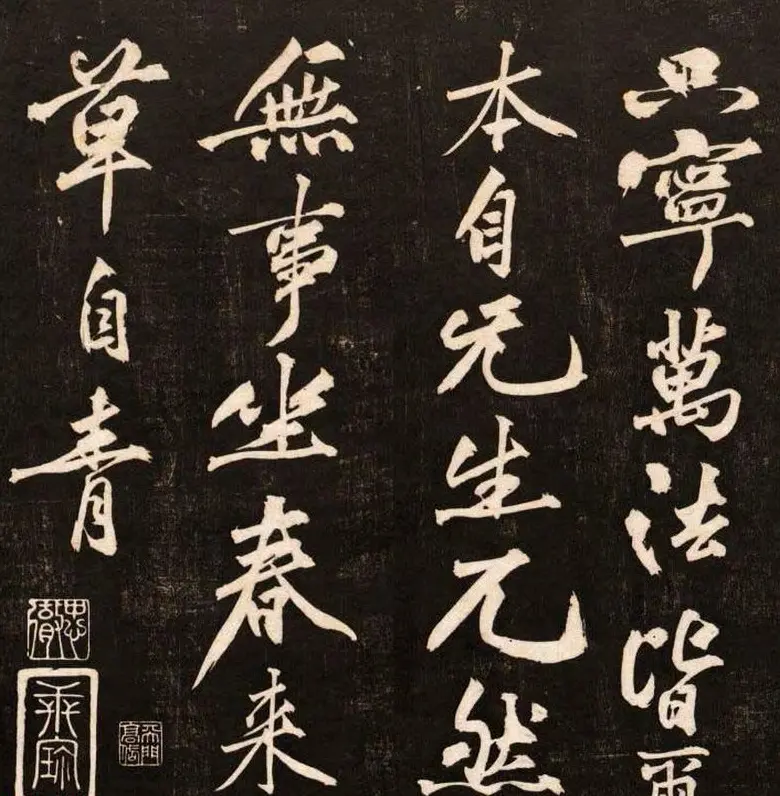 只寧萬法皆爾
本自无生兀然
無事坐春来
草自青